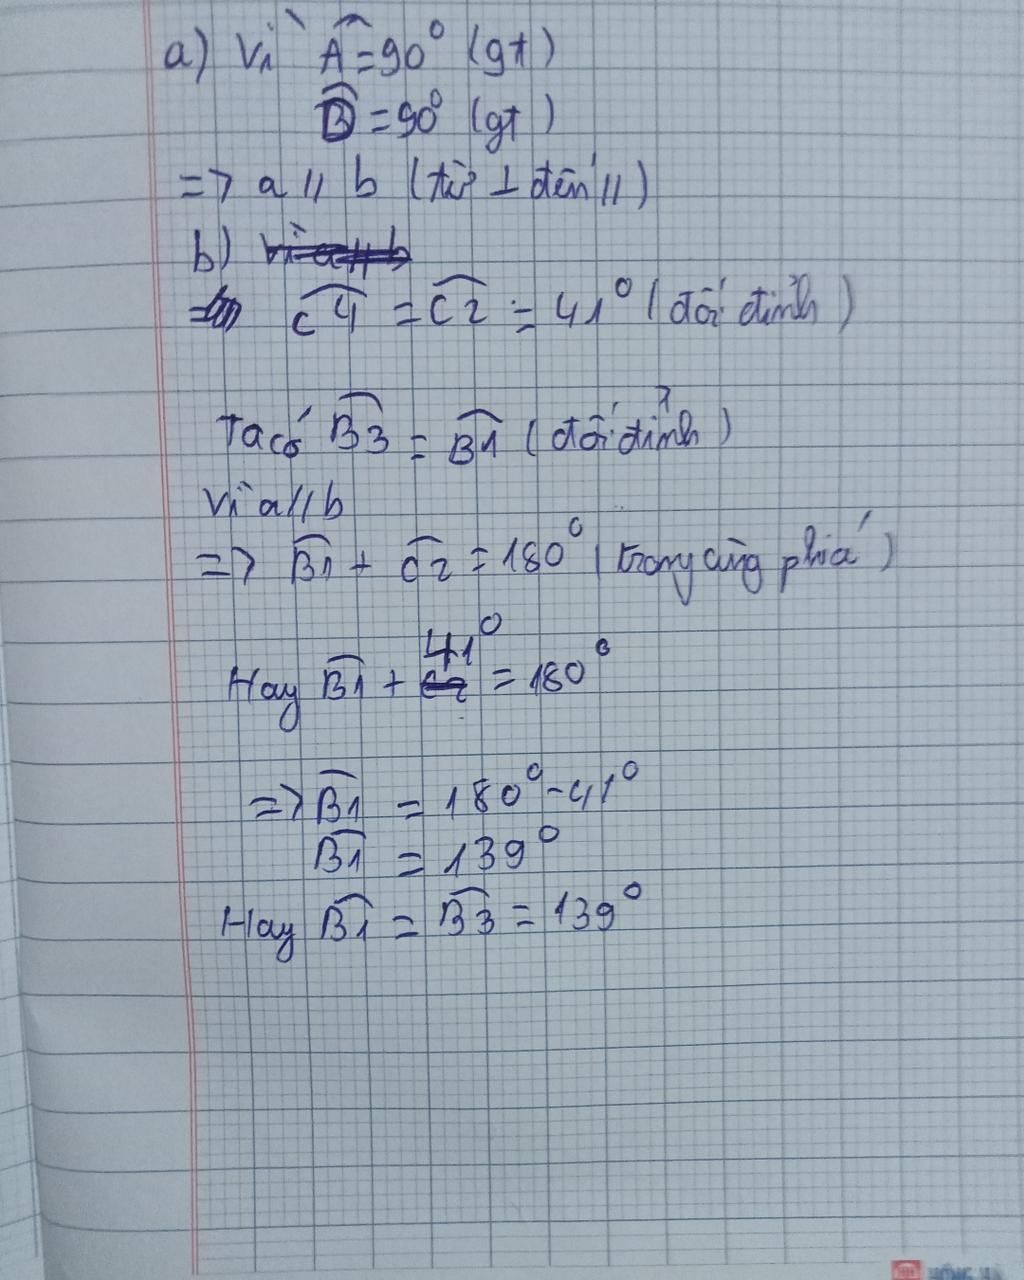 a) Vì Â = 90° (gt)
B̂ = 90° (gt)
=> a // b (từ ⊥ đến //)
b)
Ĉ4 = Ĉ2 = 41° (đối đỉnh)
Ta có B̂3 = B̂1 (đối đỉnh)
Vì a // b
=> B̂1 + Ĉ2 = 180° (trong cùng phía)
Hay B̂1 + 41° = 180°
=> B̂1 = 180° - 41°
B̂1 = 139°
Hay B̂1 = B̂3 = 139°